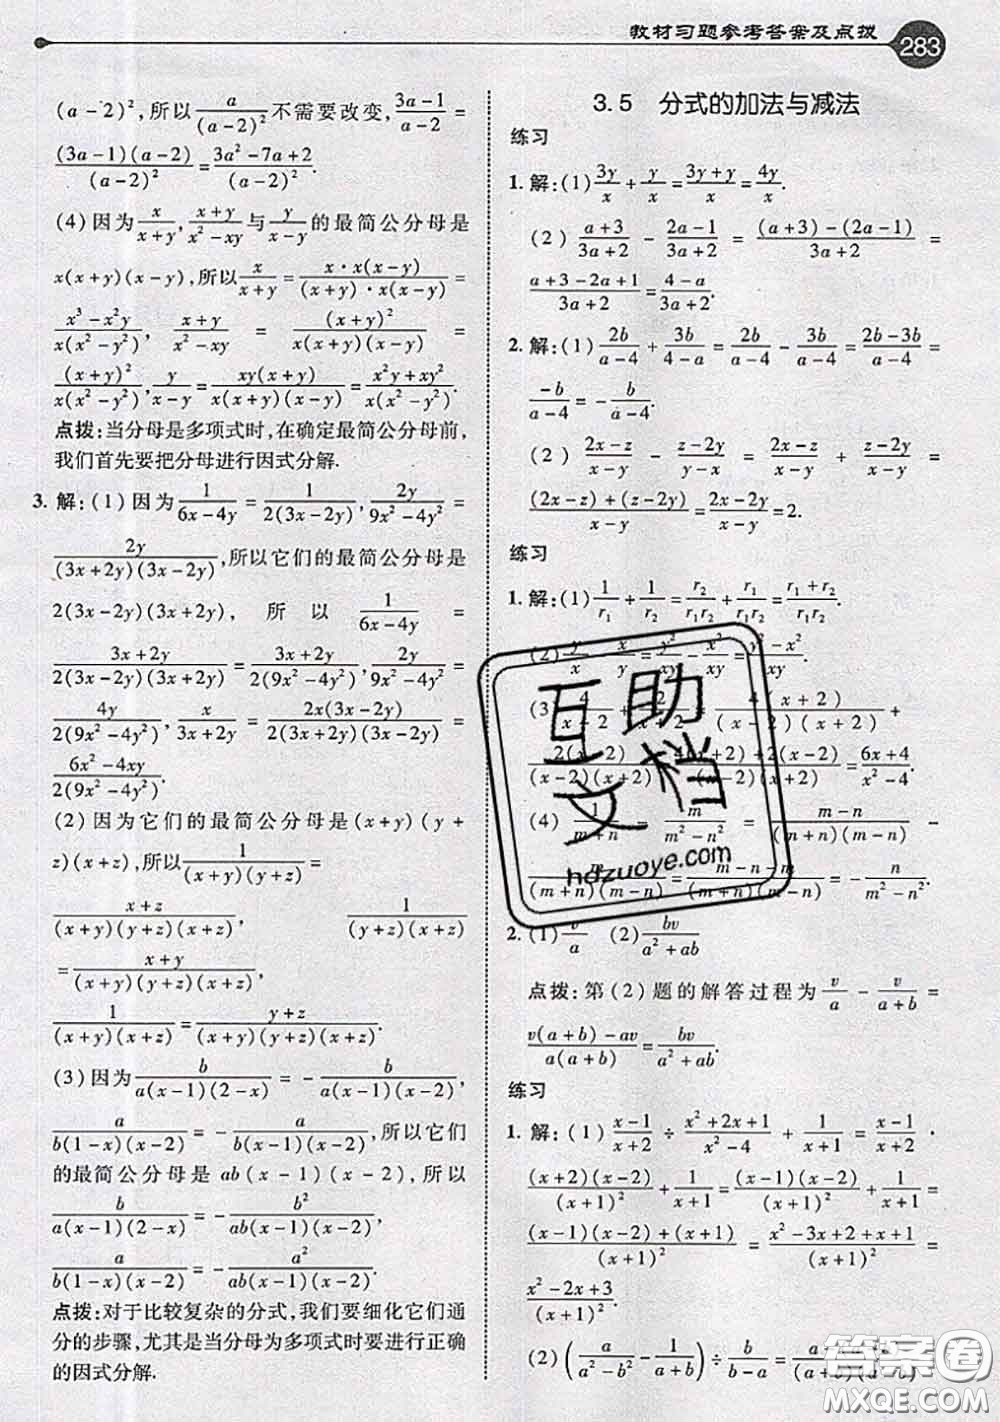 教材习题参考答案及点拨 283
(a-2)²,所以 a/(a-2)² 不需要改变, (3a-1)/(a-2) =
(3a-1)(a-2)/(a-2)² = (3a²-7a+2)/(a-2)².
(4)因为 x/(x+y), (x+y)/(x²-xy) 与 y/(x-y) 的最简公分母是
x(x+y)(x-y),所以 x/(x+y) = x·x(x-y)/((x+y)·x(x-y)) =
(x³-x²y)/(x(x²-y²)), (x+y)/(x²-xy) = (x+y)²/(x(x+y)(x-y)) =
(x+y)²/(x(x²-y²)), y/(x-y) = xy(x+y)/(x(x+y)(x-y)) = (x²y+xy²)/(x(x²-y²)).
点拨:当分母是多项式时,在确定最简公分母前,
我们首先要把分母进行因式分解.
3. 解:(1)因为 1/(6x-4y) = 1/(2(3x-2y)), 2y/(9x²-4y²) =
2y/((3x+2y)(3x-2y)),所以它们的最简公分母是
2(3x-2y)(3x+2y), 所以 1/(6x-4y) =
(3x+2y)/(2(3x-2y)(3x+2y)) = (3x+2y)/(2(9x²-4y²)), 2y/(9x²-4y²) =
4y/(2(9x²-4y²)), x/(3x+2y) = 2x(3x-2y)/(2(3x+2y)(3x-2y)) =
(6x²-4xy)/(2(9x²-4y²)).
(2)因为它们的最简公分母是(x+y)(y+
z)(x+z),所以 1/((x+y)(y+z)) =
(x+z)/((x+y)(y+z)(x+z)), 1/((y+z)(x+z))
= (x+y)/((x+y)(y+z)(x+z)),
1/((x+y)(x+z)) = (y+z)/((x+y)(y+z)(x+z)).
(3)因为 b/(a(x-1)(2-x)) = - b/(a(x-1)(x-2)),
a/(b(1-x)(x-2)) = - a/(b(x-1)(x-2)),所以它们
的最简公分母是 ab(x-1)(x-2),所以
b/(a(x-1)(2-x)) = - b²/(ab(x-1)(x-2)),
a/(b(1-x)(x-2)) = - a²/(ab(x-1)(x-2)).
点拨:对于比较复杂的分式,我们要细化它们通
分的步骤,尤其是当分母为多项式时要进行正确
的因式分解.
3.5 分式的加法与减法
练习
1. 解:(1) 3y/x + y/x = (3y+y)/x = 4y/x.
(2) (a+3)/(3a+2) - (2a-1)/(3a+2) = ((a+3)-(2a-1))/(3a+2) =
(a+3-2a+1)/(3a+2) = (4-a)/(3a+2).
2. 解:(1) 2b/(a-4) + 3b/(4-a) = 2b/(a-4) - 3b/(a-4) = (2b-3b)/(a-4) =
-b/(a-4) = - b/(a-4).
(2) (2x-z)/(x-y) - (z-2y)/(y-x) = (2x-z)/(x-y) + (z-2y)/(x-y) =
((2x-z)+(z-2y))/(x-y) = (2x-2y)/(x-y) = 2.
练习
1. 解:(1) 1/r₁ + 1/r₂ = r₂/(r₁r₂) + r₁/(r₁r₂) = (r₁+r₂)/(r₁r₂).
(2) y/x - x/y = y²/xy - x²/xy = (y²-x²)/xy.
(3) 4/(x-2) + 2/(x+2) = 4(x+2)/((x-2)(x+2)) +
2(x-2)/((x-2)(x+2)) = (4(x+2)+2(x-2))/((x-2)(x+2)) = (6x+4)/(x²-4).
(4) 1/(m+n) - m/(m²-n²) = (m-n)/((m+n)(m-n)) -
m/((m+n)(m-n)) = (m-n-m)/((m+n)(m-n)) = - n/(m²-n²).
2. (1) v/a (2) bv/(a²+ab)
点拨:第(2)题的解答过程为 v/a - v/(a+b) =
(v(a+b)-av)/(a(a+b)) = bv/(a²+ab).
练习
1. 解:(1) (x-1)/(x+2) ÷ (x²+2x+1)/(x²-4) + 1/(x+1) = (x-1)/(x+2) ·
(x+2)(x-2)/(x+1)² + 1/(x+1) = (x-1)(x-2)/(x+1)² + 1/(x+1) =
((x-1)(x-2)+(x+1))/(x+1)² = (x²-3x+2+x+1)/(x+1)² =
(x²-2x+3)/(x+1)².
(2) (a/(a²-b²) - 1/(a+b)) ÷ b/(b-a) =
互助文档
hdzuoye.com
答案圈
MXQE.COM